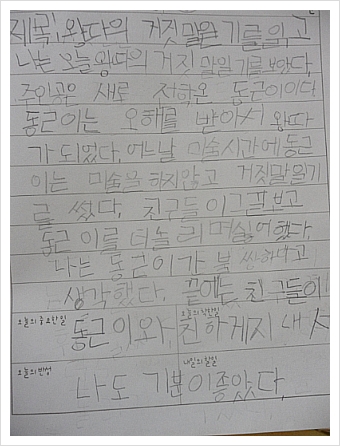 제목: 왕따의 거짓말일기를 읽고
나는 오늘 왕따의 거짓 말일기를 보았다.
주인공은 새로 전학온 동근이이다
동근이는 오해를 받아서 왕따
가 되었다. 어느날 미술시간에 동근
이는 미술을 하지않고 거짓말을기
를 썼다. 친구들이 그걸보고
동근이를 더놀리며 싫어했다.
나는 동근이가 불쌍하다고
생각했다. 끝에는 친구들이
오늘의 중요한 일
오늘의 착한일
동근이와 친하게지내서
오늘의 반성
내일의 할일
나도 기분이좋았다.